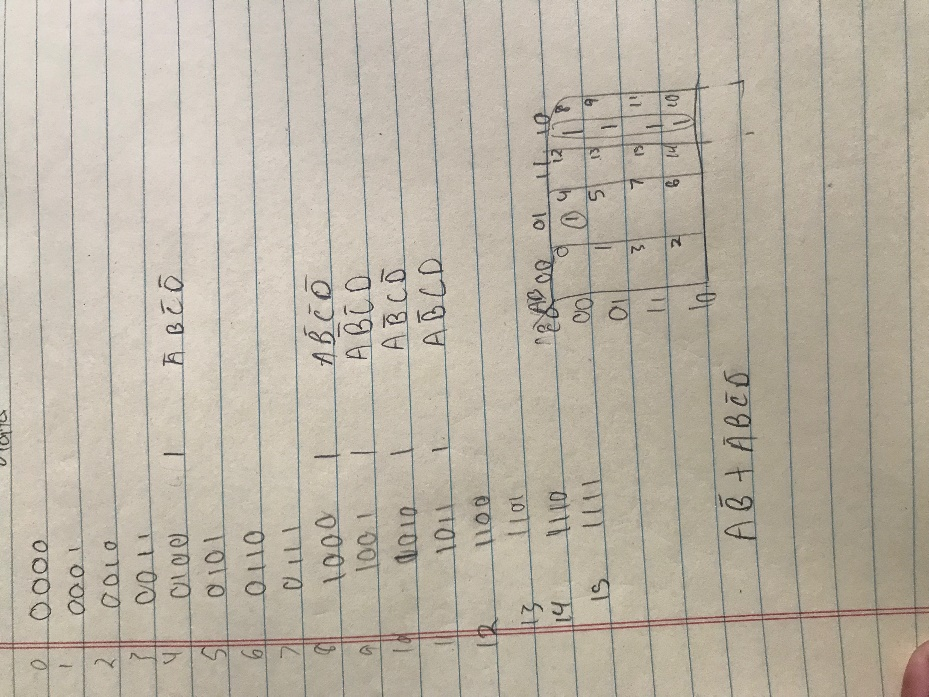 0 0000
1 0001
2 0010
3 0011
4 0100 1 A̅BC̅D̅
5 0101
6 0110
7 0111
8 1000 1 AB̅C̅D̅
9 1001 1 AB̅C̅D
10 1010 1 AB̅CD̅
1 1011 1 AB̅CD
12 1100
13 1101
14 1110
15 1111
AB 00 01 11 10
00 0 1 4 12 1 8
01 1 5 13 1 9
11 3 7 15 1 11
10 2 6 14 1 10
AB̅ + A̅BC̅D̅